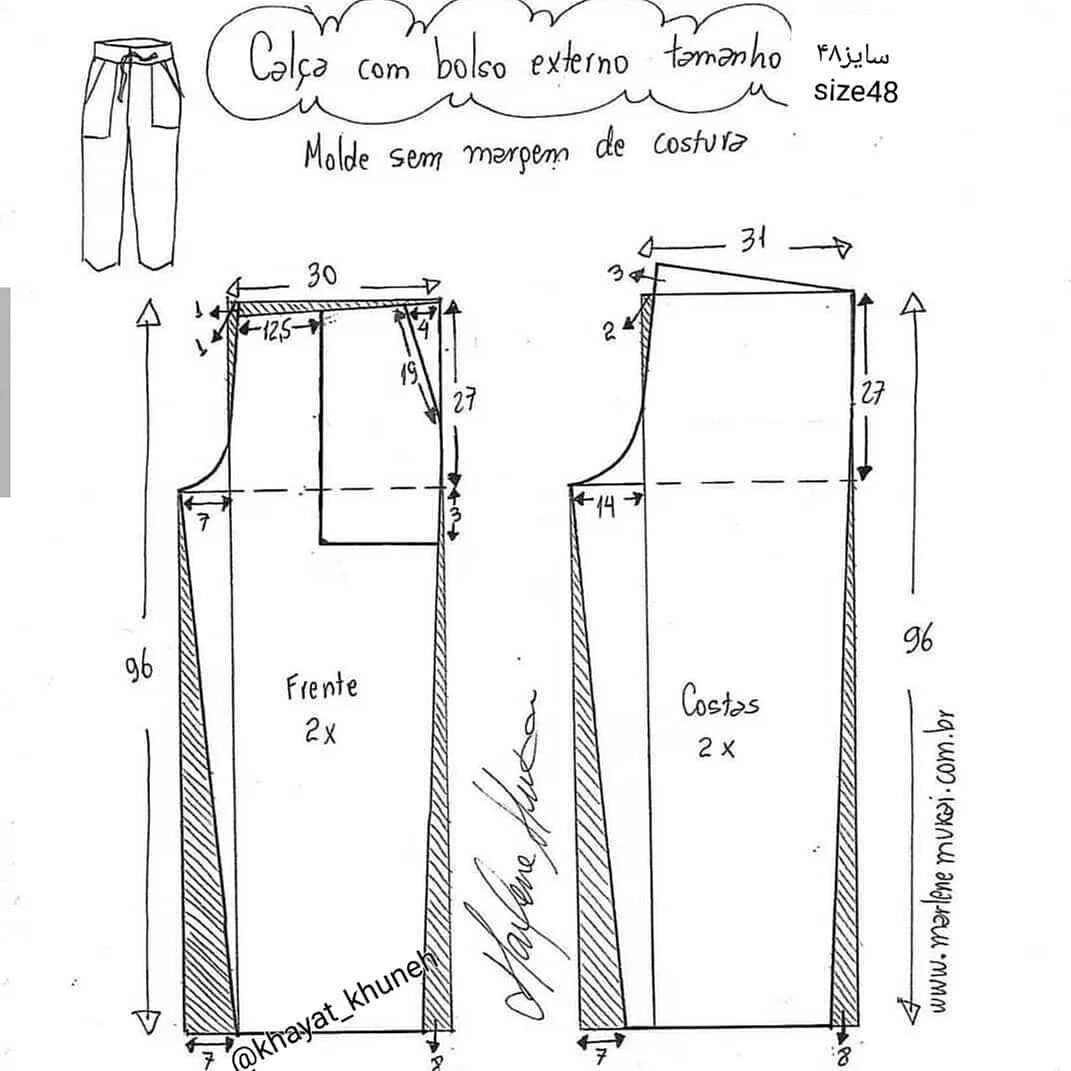 Calça com bolso externo tamanho
سایز۴۸
size48
Molde sem margem de costura
30
1
1
12,5
4
19
27
7
3
96
Frente
2x
7
8
31
3
2
27
14
96
Costas
2x
7
8
@khayat_khuneh
www.marlenemukai.com.br